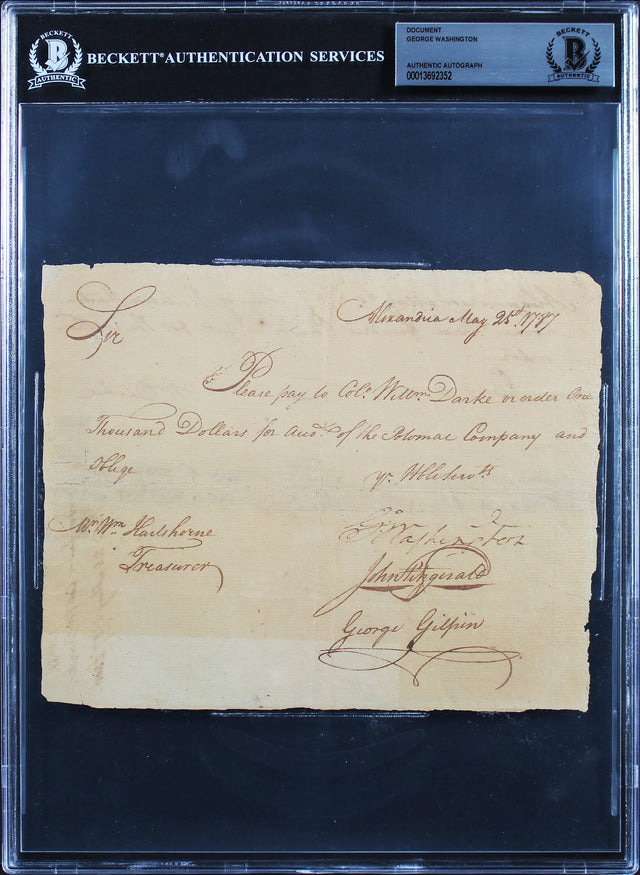 BECKETT
B
AUTHENTIC
BECKETT® AUTHENTICATION SERVICES
DOCUMENT
GEORGE WASHINGTON
AUTHENTIC AUTOGRAPH
00013692352
BECKETT
B
AUTHENTIC
Sir
Alexandria May 25th. 1787
Please pay to Colo. Willm. Darke or order One
Thousand Dollars for Accot. of the Potomac Company and
Oblige
yr. Hble Servts
Mr. Wm. Hartshorne
Treasurer
Go Washington
John Fitzgerald
George Gilpin